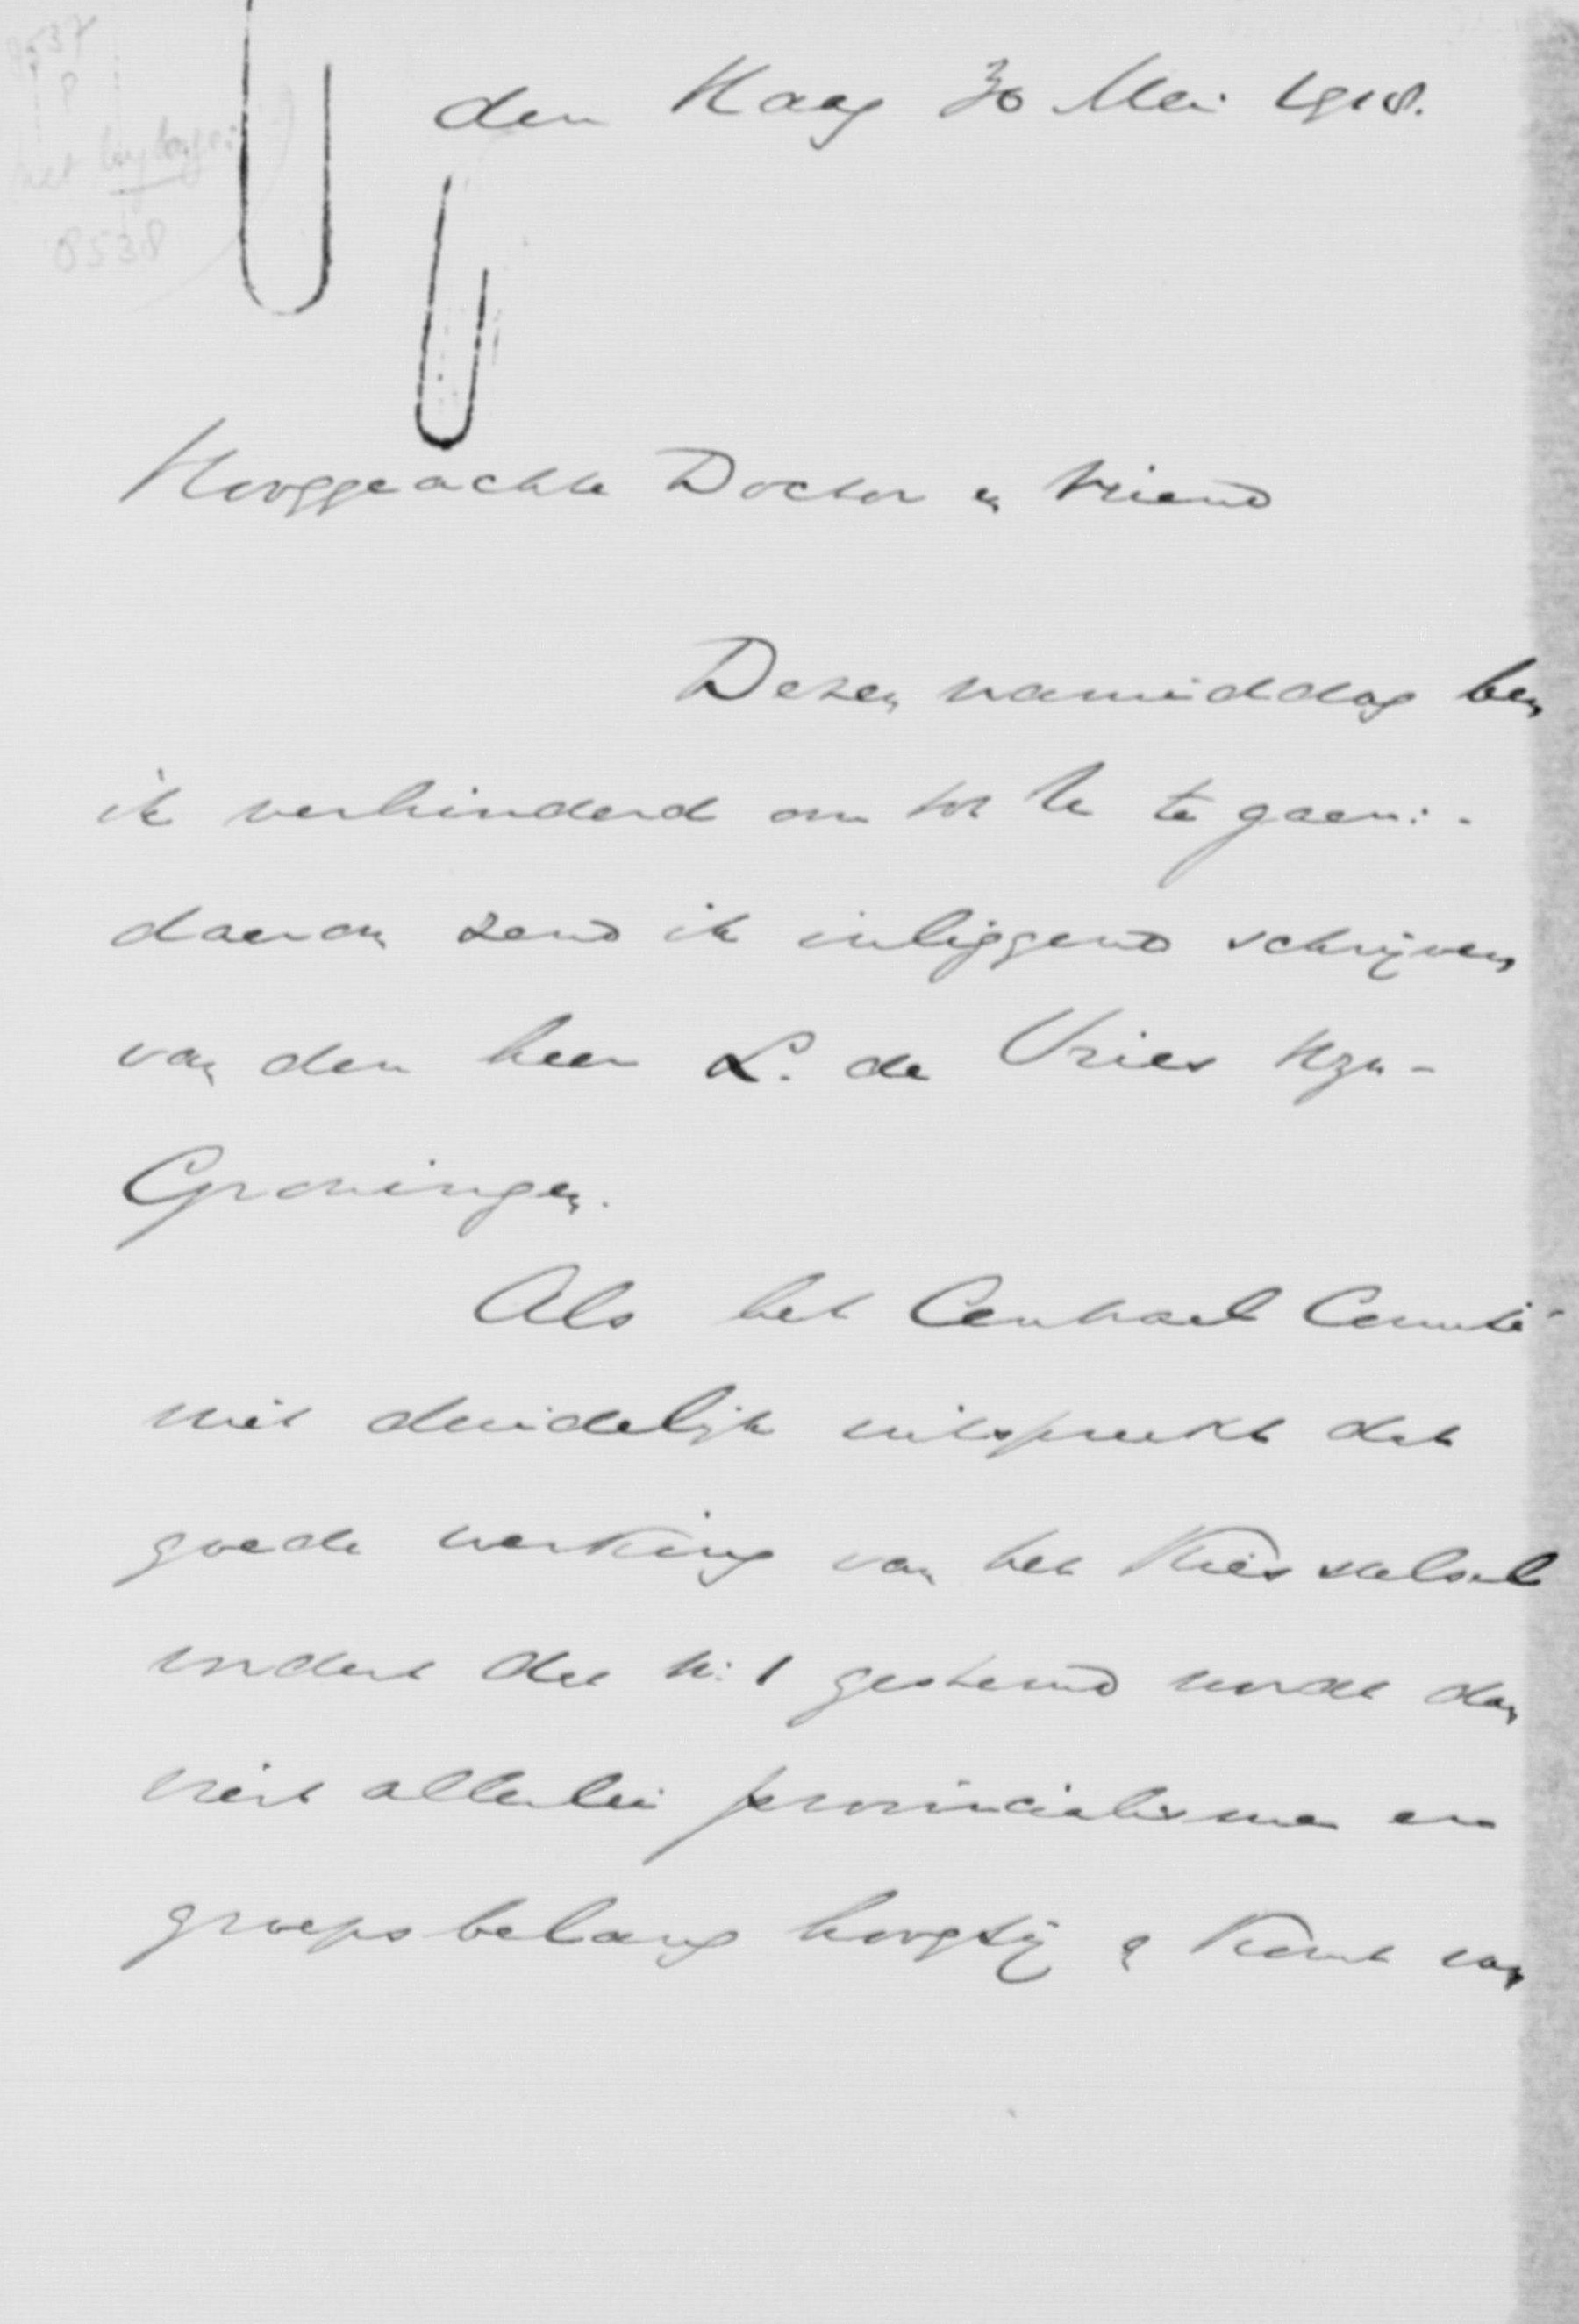 8537
8538
den Haag 30 Mei 1918.
Hooggeachte Doctor en Vriend
Dezen namiddag ben
ik verhinderd om tot U te gaan:-
daarom zend ik inliggend schrijven
van den heer L. de Vries Hzn-
Groningen.
Als het Centraal Comité
niet duidelijk uitspreekt dat
goede werking van het Kiesstelsel
vordert dat No: 1 gestemd wordt dan
viert allerlei provincialisme en
groepsbelang hoogtij & komt van